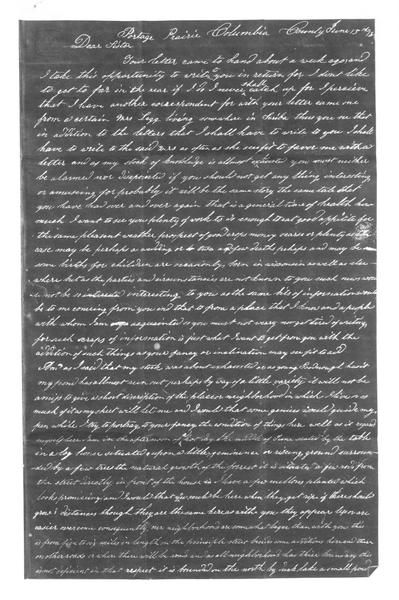 Portage Prairie Columbia County June 15th
Dear Sister
Your letter came to hand about a week ago and
I take this opportunity to write you in return for I dont like
to get to far in the rear if I do I never shall catch up for I perceive
that I have another correspondent for with your letter came one
from a certain Mrs living somewhere in Scriba thus you see that
in addition to the letters that I shall have to write to you I shall
have to write to the said Mrs as often as she see fit to favor me with a
letter and as my stock of knowledge is allmost exhausted you must neither
be alarmed nor disjointed if you should not get any thing interesting
or amusing for probably it will be the same story the same tale that
you have had over and over again that is a general time of health how
much I want to see you plenty of work to do enough to eat good appetite for
the same pleasant weather prospect of good crops money scarce or plenty as the
case may be perhaps a wedding or two a few deaths perhaps and may be
some births for children are occasionly born in wisconsin as well as else
where but as the parties and circumstances are not known to you such news
not be so interesting to you as the same bits of information would
be to me coming from you and that to from a place that I know and a people
with whom I am acquainted so you must not vary nor get tired of writing
for such scraps of information is just what I want to get from you with the
addition of such things as your fancy or inclination may see fit to add
But as I said that my stock was about exhausted or as you say
my pond has allmost run out perhaps by way of a little variety it will not be
amiss to give a short description of the place or neighborhood in which I live or as
much of it as my sheet will let me and I could wish that some genius would guide my
pen while I try to portray to your fancy the condition of things here well as it regards
myself here I am in the afternoon of this day the middle of June seated by the table
in a log house situated upon a little eminence or rising ground surroun
ded by a few trees the natural growth of the forest it is situate a few rods from
the street directly in front of the house is I have a few mellons planted which
looks promising and I would that you could be here when they get ripe if there should
grow distances though they are the same here as with you they appear
easier overcome consequently our neighborhood are somewhat larger than with you this
is from five to six miles in length on the principle street besides
other roads or where there will be roads and as all neighborhoods has there boundary this
is not deficient in that respect it is bounded on the north by a small pond